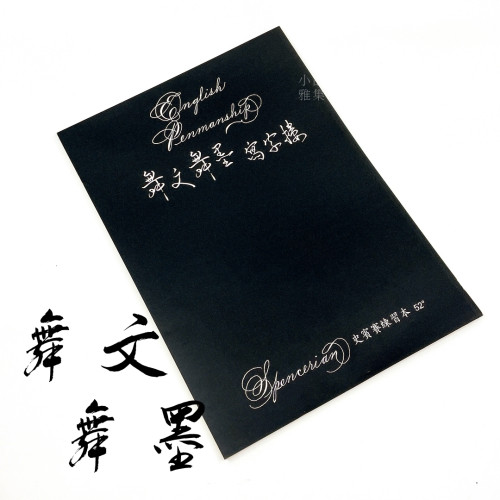 English
Penmanship
舞文舞墨 寫字樓
Spencerian 史賓賽練習本 52°
舞文
舞墨
小品
雅集